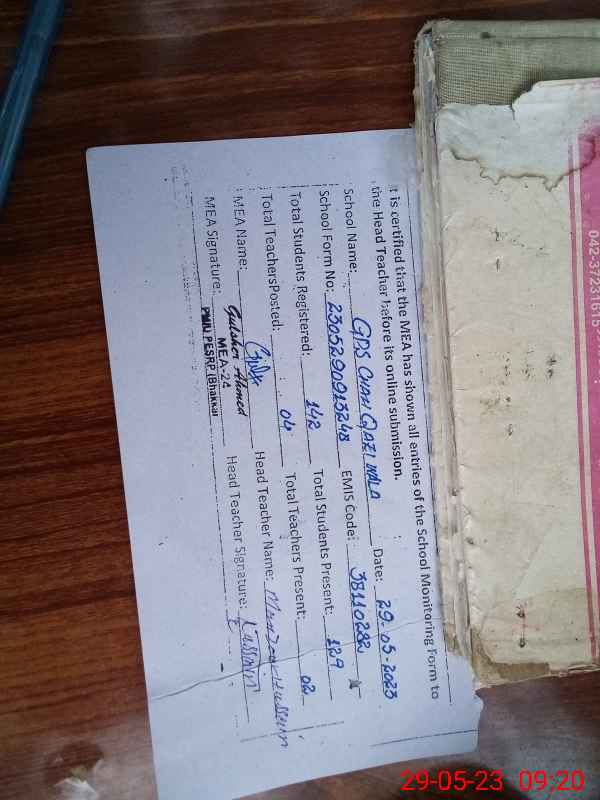 It is certified that the MEA has shown all entries of the School Monitoring Form to
the Head Teacher before its online submission.
School Name: GPS CHAH QAZI WALA Date: 29-05-2023
School Form No: 2305290913248 EMIS Code: 38110282
Total Students Registered: 142 Total Students Present: 129
Total TeachersPosted: 04 Total Teachers Present: 02
MEA Name: Head Teacher Name: Hussain
MEA Signature: Gulsher Ahmed Head Teacher Signature: Hussain
MEA-24
PMIU PESRP (Bhakkar
042-37231615
29-05-23 09:20